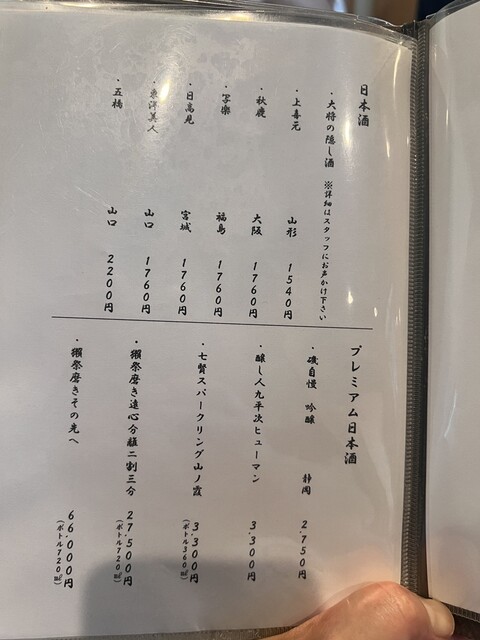 日本酒
・大将の隠し酒 ※詳細はスタッフにお声かけ下さい
・上喜元 山形 1540円
・秋鹿 大阪 1760円
・写樂 福島 1760円
・日高見 宮城 1760円
・東洋美人 山口 1760円
・五橋 山口 2200円
プレミアム日本酒
・磯自慢 吟醸 静岡 2,750円
・醸し人九平次ヒューマン 3,300円
・七賢スパークリング山ノ霞 3,300円
(ボトル360㎖)
・獺祭磨き遠心分離二割三分 27,500円
(ボトル720㎖)
・獺祭磨きその先へ 66,000円
(ボトル720㎖)